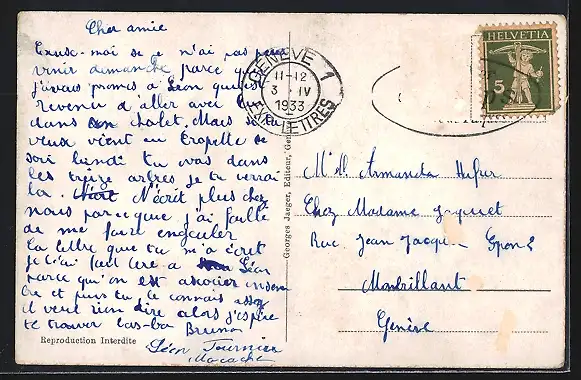 Cher amie
Excuse-moi si je n'ai pas peux
venir dimanche parce que
j'avais promis a Leon qu'est
revenu d'aller avec lui
dans son chalet. Mais si tu
veux vient en Cropette ce
soir lundi tu vas dans
les treize arbres je te verrai
la. N'écrit plus chez
nous parceque j'ai faille
de me faire engueuler
la lettre que tu m'a écrit
je l'ai fait lire a Léon
parce qu'on est associer ensem
ble et puis tu le connais assez
il veut rien dire alors j'espère
te trouver las-ba Bruno
Léon Fournier
Reproduction Interdite
Georges Jaeger, Editeur, Genève
GENÈVE 1
11-12
3 · IV
1933
EXP. LETTRES
HELVETIA
5
Mlle Armanda
Chez Madame Jaquet
Rue Jean Jacques
Montbrillant
Genève